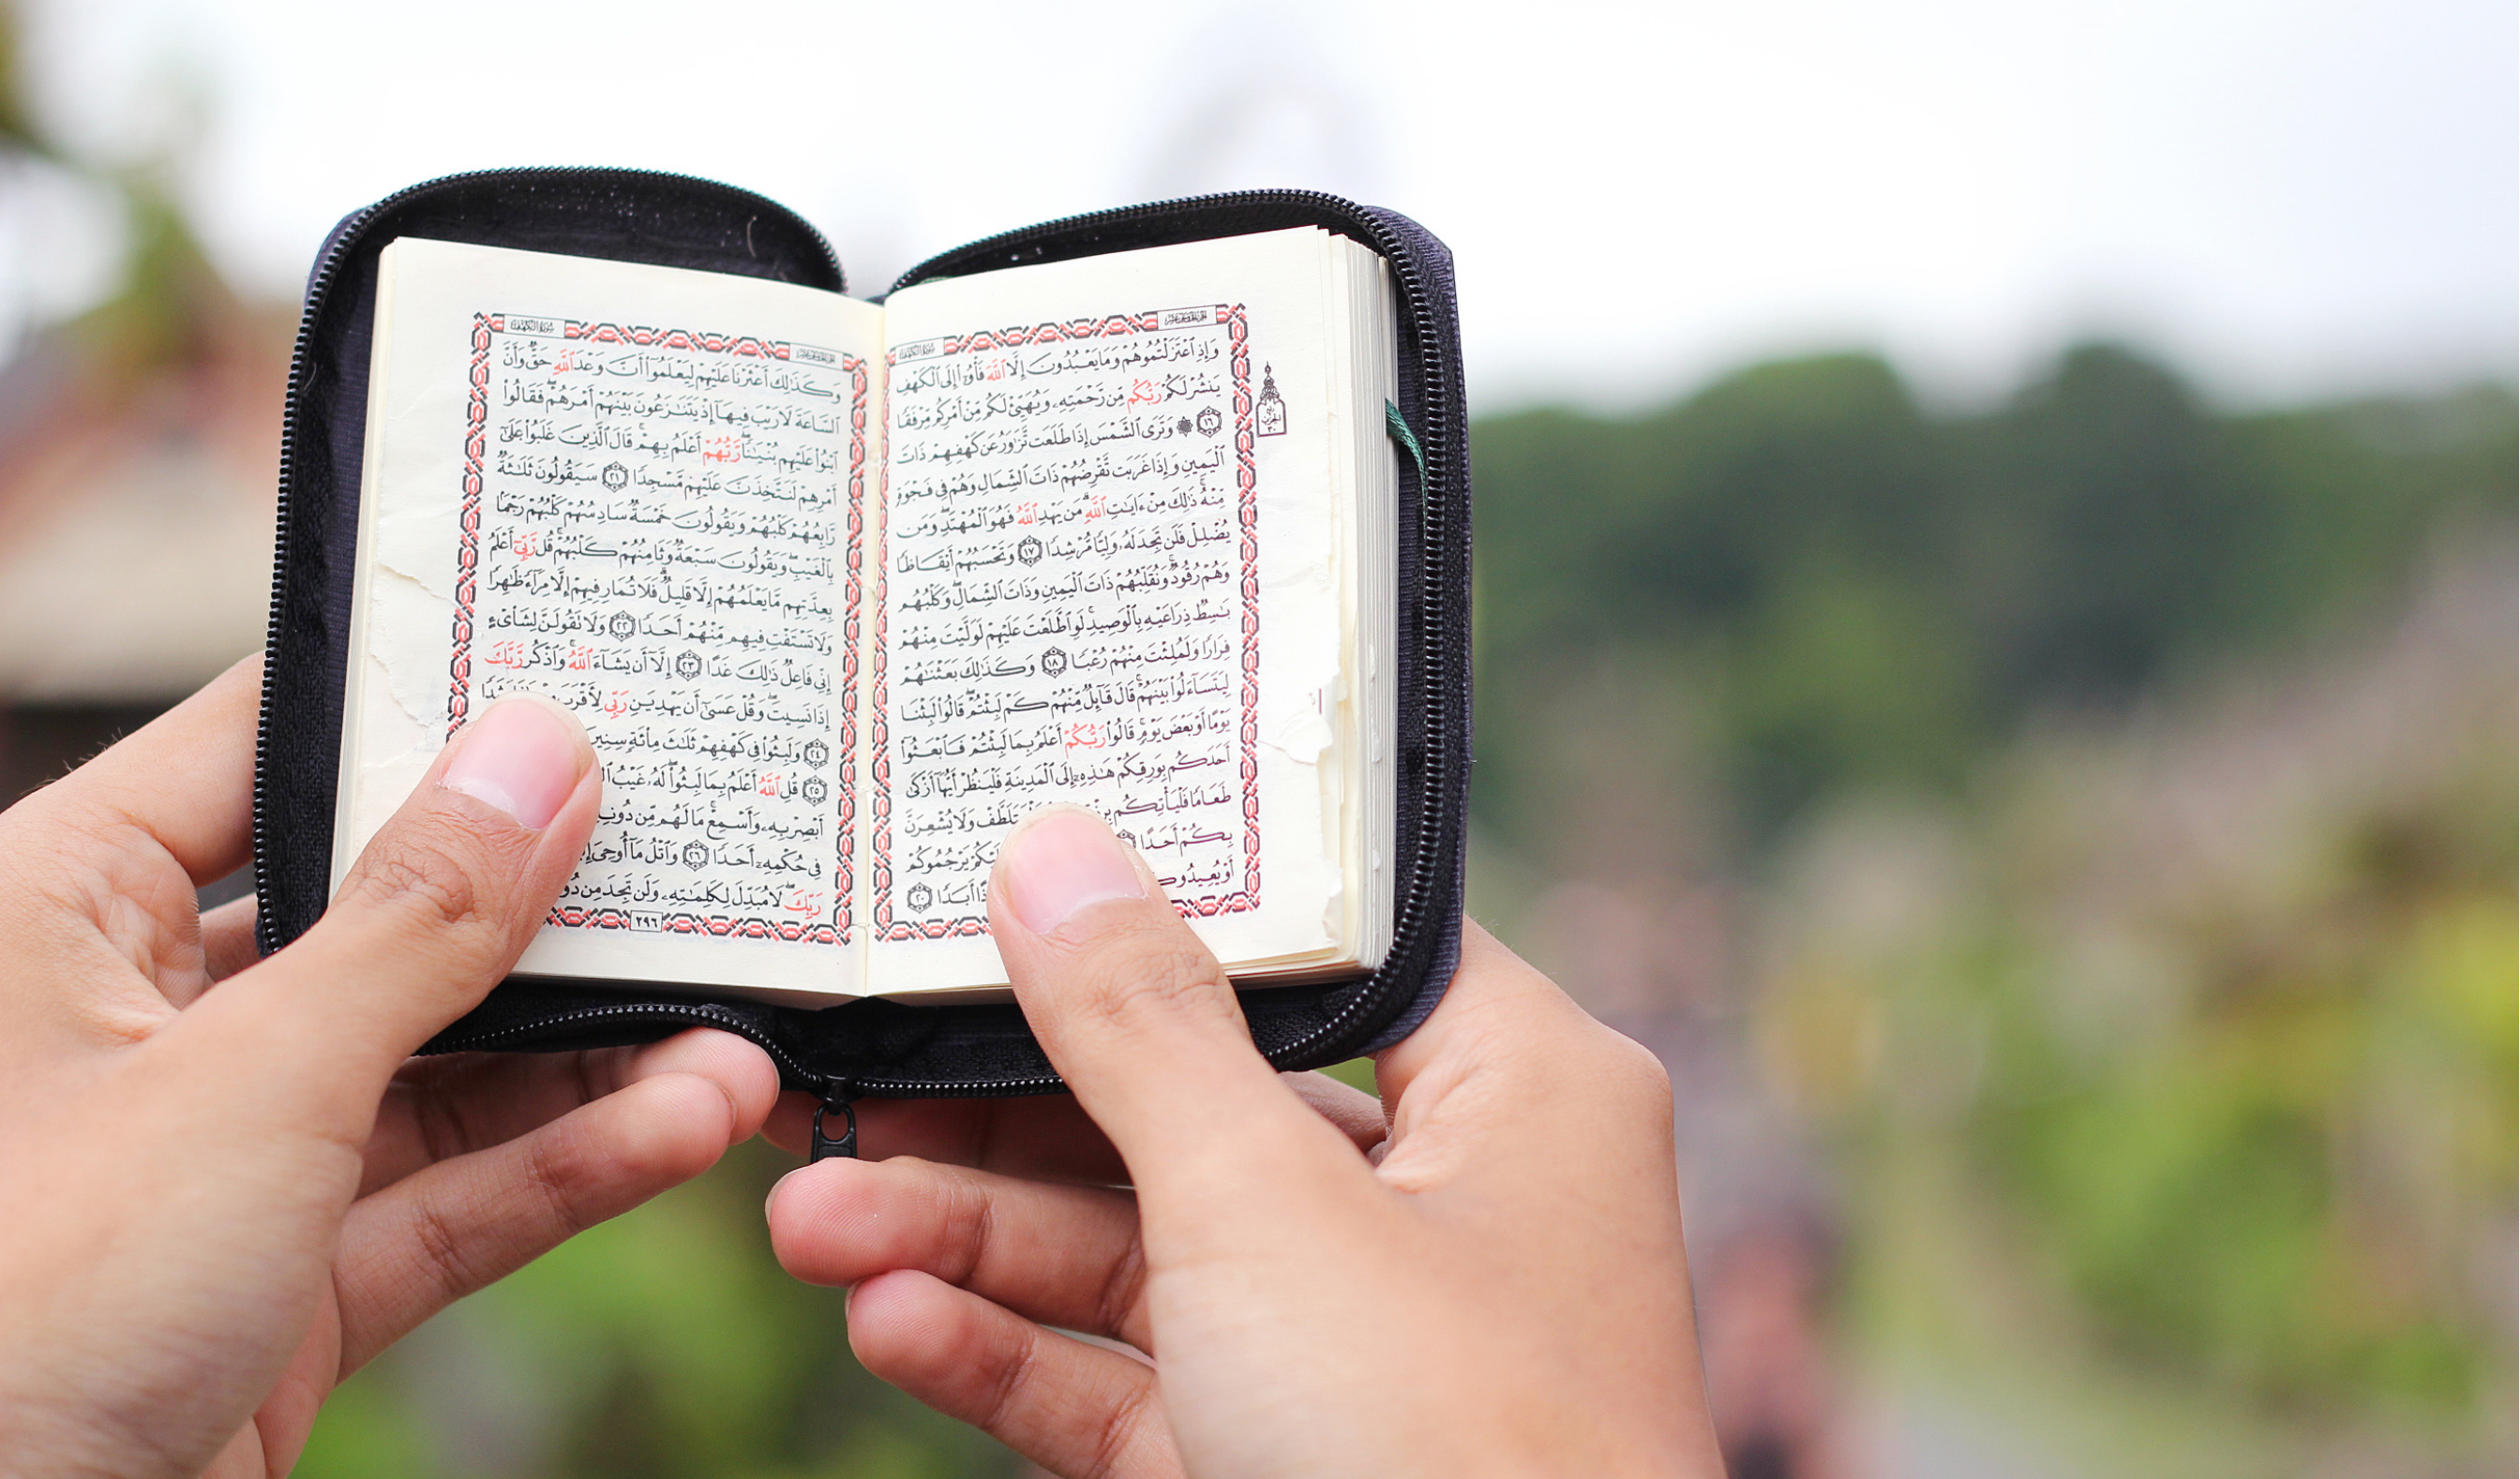 سورة الكهف
وَإِذِ ٱعۡتَزَلۡتُمُوهُمۡ وَمَا يَعۡبُدُونَ إِلَّا ٱللَّهَ فَأۡوُۥٓاْ إِلَى ٱلۡكَهۡفِ
يَنشُرۡ لَكُمۡ رَبُّكُم مِّن رَّحۡمَتِهِۦ وَيُهَيِّئۡ لَكُم مِّنۡ أَمۡرِكُم مِّرۡفَقٗا
١٦ ۞ وَتَرَى ٱلشَّمۡسَ إِذَا طَلَعَت تَّزَٰوَرُ عَن كَهۡفِهِمۡ ذَاتَ
ٱلۡيَمِينِ وَإِذَا غَرَبَت تَّقۡرِضُهُمۡ ذَاتَ ٱلشِّمَالِ وَهُمۡ فِي فَجۡوَةٖ
مِّنۡهُۚ ذَٰلِكَ مِنۡ ءَايَٰتِ ٱللَّهِۗ مَن يَهۡدِ ٱللَّهُ فَهُوَ ٱلۡمُهۡتَدِۖ وَمَن
يُضۡلِلۡ فَلَن تَجِدَ لَهُۥ وَلِيّٗا مُّرۡشِدٗا ١٧ وَتَحۡسَبُهُمۡ أَيۡقَاظٗا
وَهُمۡ رُقُودٞۚ وَنُقَلِّبُهُمۡ ذَاتَ ٱلۡيَمِينِ وَذَاتَ ٱلشِّمَالِۖ وَكَلۡبُهُم
بَٰسِطٞ ذِرَاعَيۡهِ بِٱلۡوَصِيدِۚ لَوِ ٱطَّلَعۡتَ عَلَيۡهِمۡ لَوَلَّيۡتَ مِنۡهُمۡ
فِرَارٗا وَلَمُلِئۡتَ مِنۡهُمۡ رُعۡبٗا ١٨ وَكَذَٰلِكَ بَعَثۡنَٰهُمۡ
لِيَتَسَآءَلُواْ بَيۡنَهُمۡۚ قَالَ قَآئِلٞ مِّنۡهُمۡ كَمۡ لَبِثۡتُمۡۖ قَالُواْ لَبِثۡنَا
يَوۡمًا أَوۡ بَعۡضَ يَوۡمٖۚ قَالُواْ رَبُّكُمۡ أَعۡلَمُ بِمَا لَبِثۡتُمۡ فَٱبۡعَثُوٓاْ
أَحَدَكُم بِوَرِقِكُمۡ هَٰذِهِۦٓ إِلَى ٱلۡمَدِينَةِ فَلۡيَنظُرۡ أَيُّهَآ أَزۡكَىٰ
طَعَامٗا فَلۡيَأۡتِكُم وَلَا يُشۡعِرَنَّ
بِكُمۡ أَحَدًا يَرۡجُمُوكُمۡ
أَبَدٗا ٢٠
سورة الكهف
وَكَذَٰلِكَ أَعۡثَرۡنَا عَلَيۡهِمۡ لِيَعۡلَمُوٓاْ أَنَّ وَعۡدَ ٱللَّهِ حَقّٞ وَأَنَّ
ٱلسَّاعَةَ لَا رَيۡبَ فِيهَآ إِذۡ يَتَنَٰزَعُونَ بَيۡنَهُمۡ أَمۡرَهُمۡۖ فَقَالُواْ
ٱبۡنُواْ عَلَيۡهِم بُنۡيَٰنٗاۖ رَّبُّهُمۡ أَعۡلَمُ بِهِمۡۚ قَالَ ٱلَّذِينَ غَلَبُواْ عَلَىٰٓ
أَمۡرِهِمۡ لَنَتَّخِذَنَّ عَلَيۡهِم مَّسۡجِدٗا ٢١ سَيَقُولُونَ ثَلَٰثَةٞ
رَّابِعُهُمۡ كَلۡبُهُمۡ وَيَقُولُونَ خَمۡسَةٞ سَادِسُهُمۡ كَلۡبُهُمۡ رَجۡمَۢا
بِٱلۡغَيۡبِۖ وَيَقُولُونَ سَبۡعَةٞ وَثَامِنُهُمۡ كَلۡبُهُمۡۚ قُل رَّبِّيٓ أَعۡلَمُ
بِعِدَّتِهِم مَّا يَعۡلَمُهُمۡ إِلَّا قَلِيلٞۗ فَلَا تُمَارِ فِيهِمۡ إِلَّا مِرَآءٗ ظَٰهِرٗا
وَلَا تَسۡتَفۡتِ فِيهِم مِّنۡهُمۡ أَحَدٗا ٢٢ وَلَا تَقُولَنَّ لِشَاْيۡءٍ
إِنِّي فَاعِلٞ ذَٰلِكَ غَدًا ٢٣ إِلَّآ أَن يَشَآءَ ٱللَّهُۚ وَٱذۡكُر رَّبَّكَ
إِذَا نَسِيتَ وَقُلۡ عَسَىٰٓ أَن يَهۡدِيَنِ رَبِّي لِأَقۡرَبَ
٢٤ وَلَبِثُواْ فِي كَهۡفِهِمۡ ثَلَٰثَ مِاْئَةٖ سِنِينَ
٢٥ قُلِ ٱللَّهُ أَعۡلَمُ بِمَا لَبِثُواْۖ لَهُۥ غَيۡبُ
أَبۡصِرۡ بِهِۦ وَأَسۡمِعۡۚ مَا لَهُم مِّن
فِي حُكۡمِهِۦٓ أَحَدٗا ٢٦ وَٱتۡلُ مَآ أُوحِيَ
رَبِّكَۖ لَا مُبَدِّلَ لِكَلِمَٰتِهِۦ وَلَن تَجِدَ مِن
٢٩٦